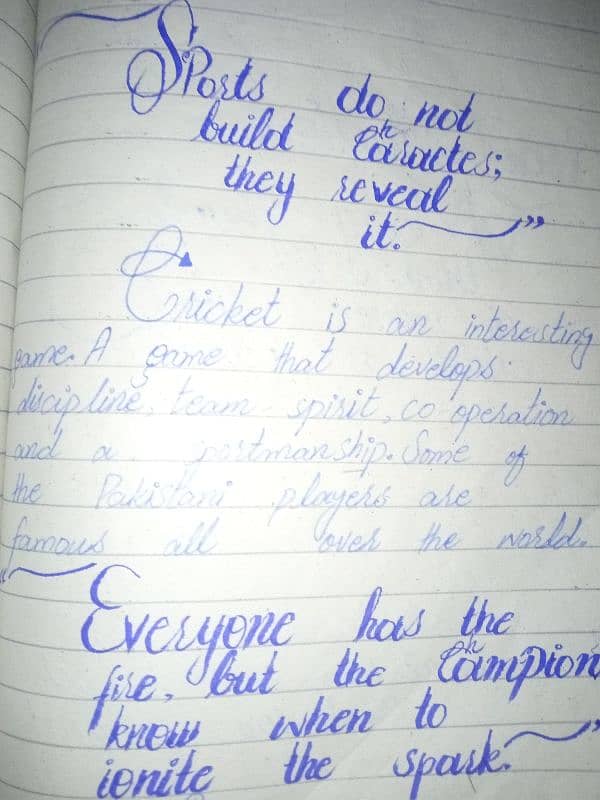 Sports do not
build Character;
they reveal
it. ”
Cricket is an interesting
game. A game that develops
discipline, team spirit, co-operation
and a sportmanship. Some of
the Pakistani players are
famous all over the world.
“ Everyone has the
fire, but the Champion
know when to
ignite the spark. ”